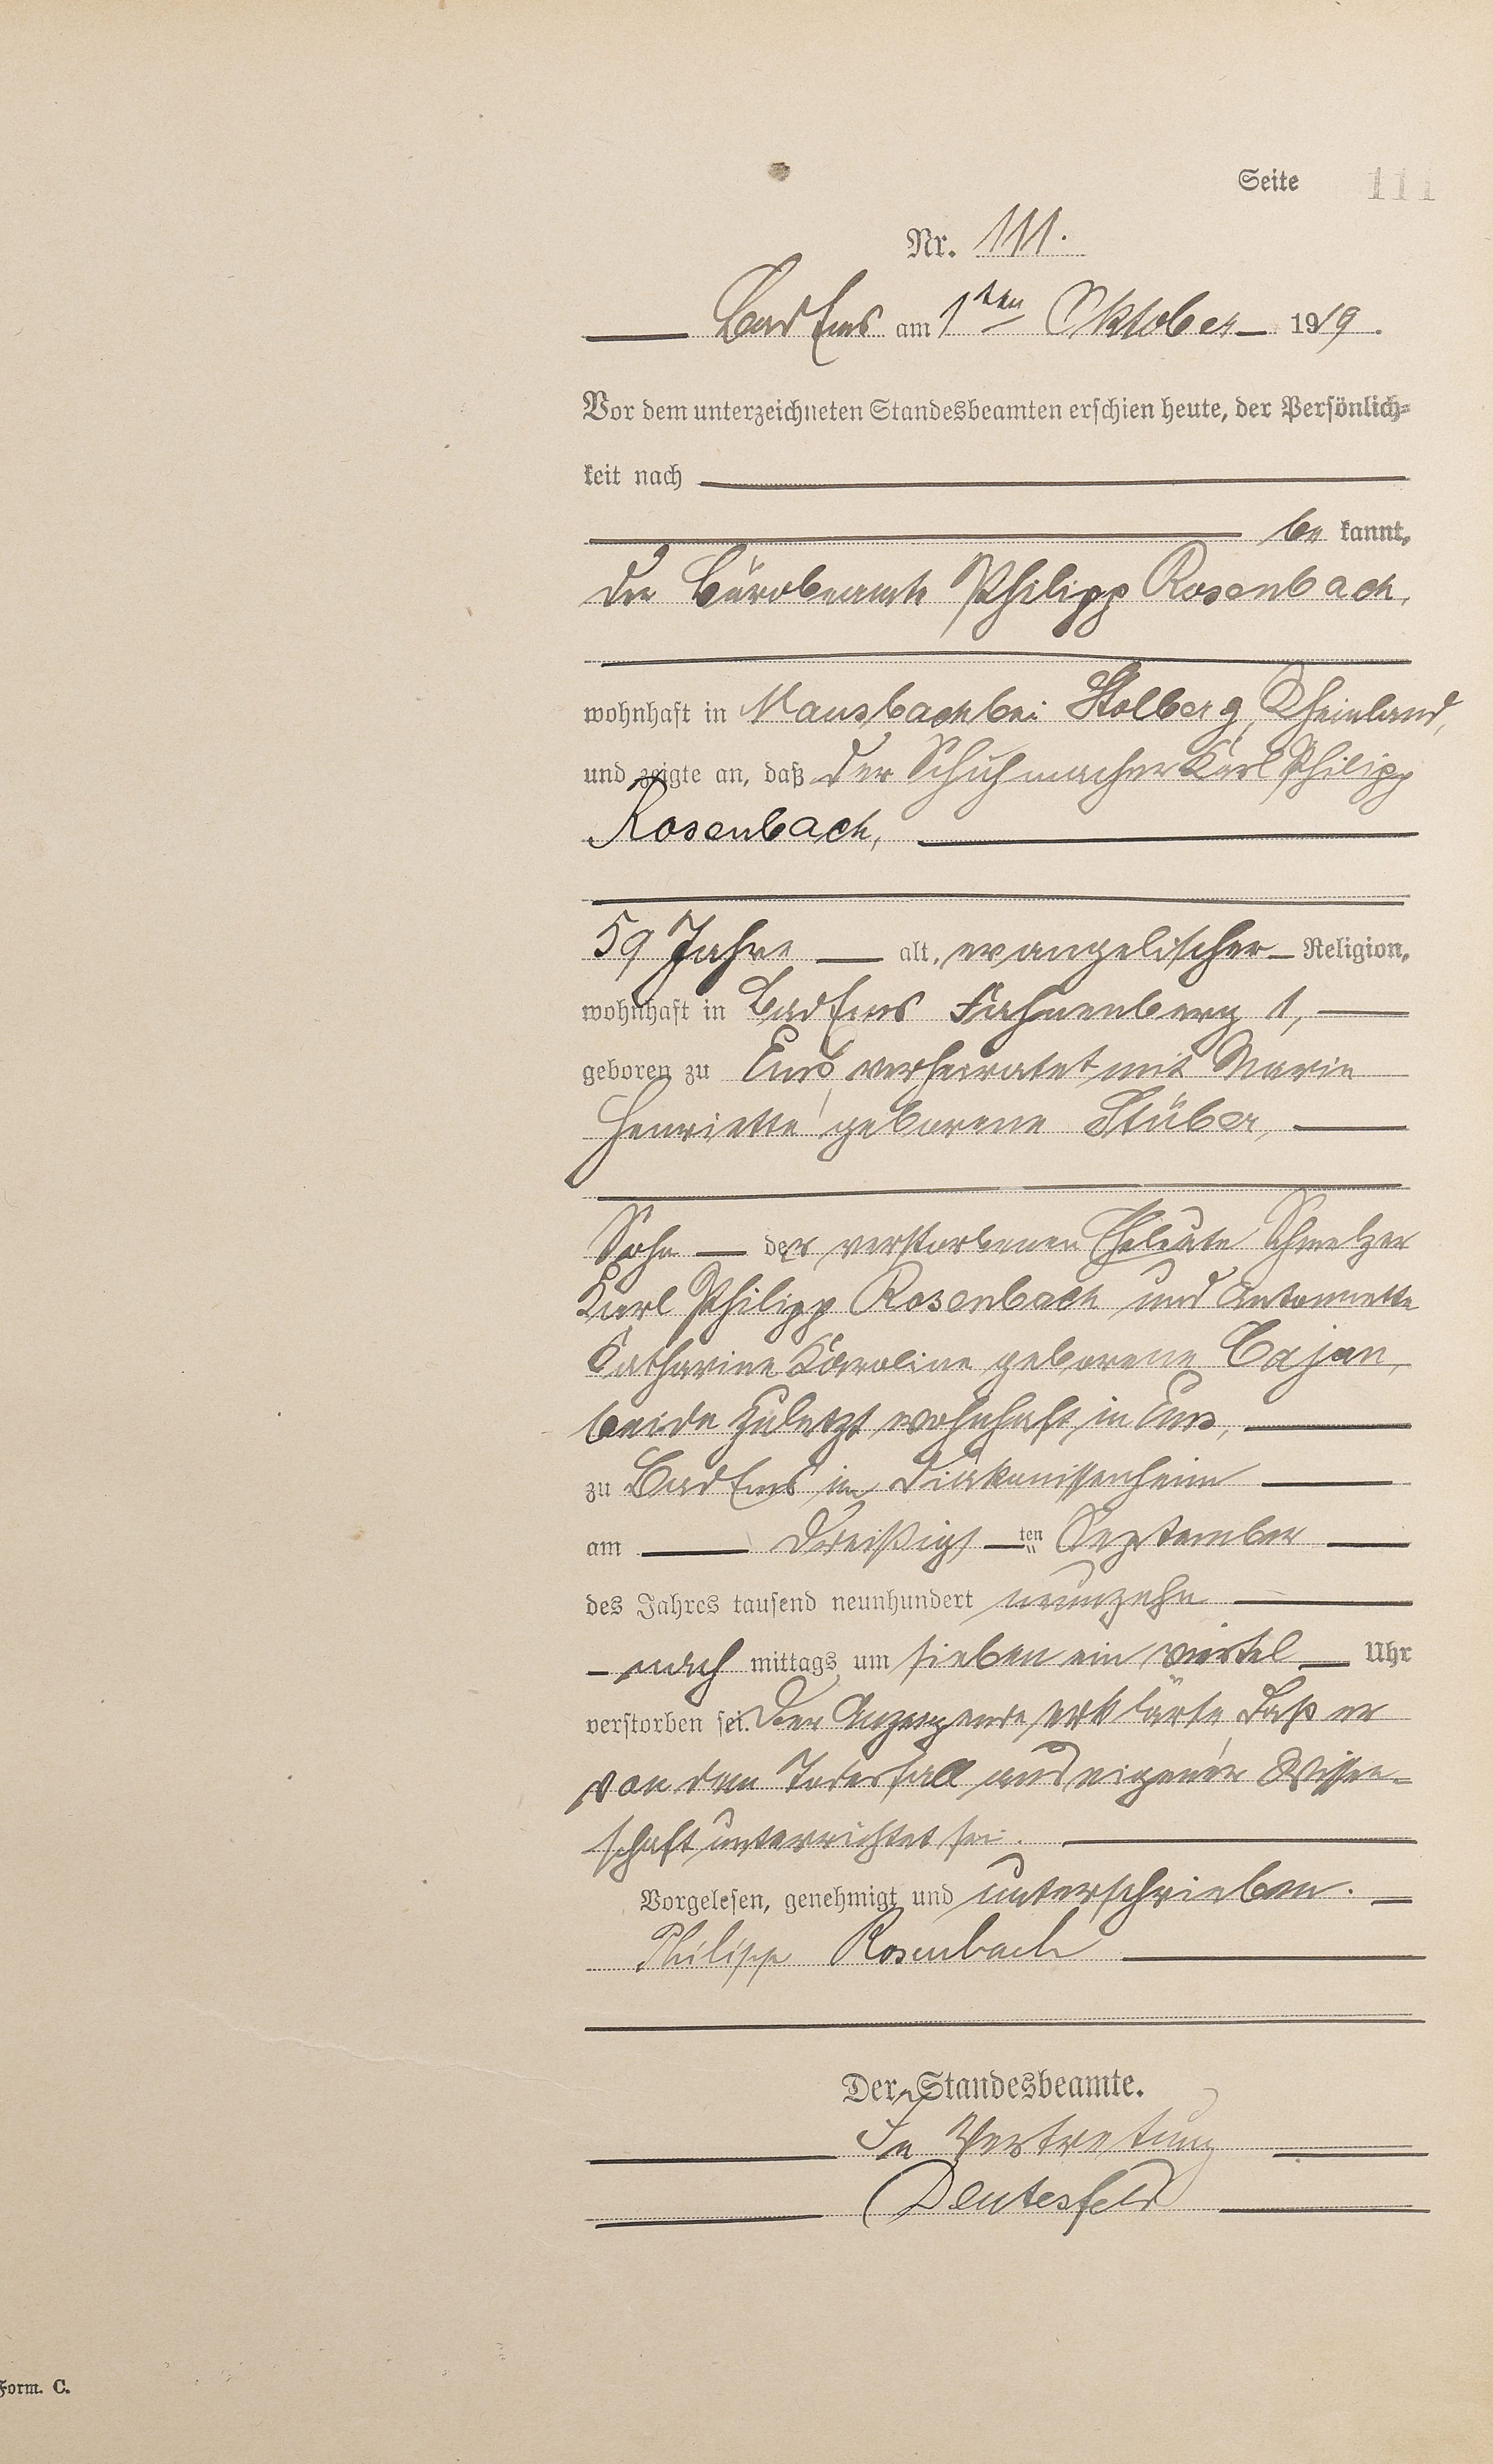 Seite 111
Nr. 111.
Bad Ems am 1ten Oktober 1919.
Vor dem unterzeichneten Standesbeamten erschien heute, der Persönlich-
keit nach
be kannt,
der Bürobeamte Philipp Rosenbach,
wohnhaft in Mausbach bei Stolberg, Rheinland,
und zeigte an, daß der Schuhmacher Karl Philipp
Rosenbach,
59 Jahre alt, evangelischer Religion,
wohnhaft in Bad Ems Fahnenberg 1,
geboren zu Ems, verheiratet mit Marie
Henriette geborene Stüber,
Sohn der verstorbenen Eheleute Schmelzer
Karl Philipp Rosenbach und Antonnette
Katharine Karoline geborene Cajan,
beide zuletzt wohnhaft in Ems,
zu Bad Ems im Diakonissenheim
am dreißigs ten September
des Jahres tausend neunhundert neunzehn
nach mittags um sieben ein viertel Uhr
verstorben sei. Der Anzeigende erklärte, daß er
von dem Todesfall aus eigener Wissen-
schaft unterrichtet sei.
Vorgelesen, genehmigt und unterschrieben.
Philipp Rosenbach
Der Standesbeamte.
In Vertretung
Deutesfeld
Form. C.